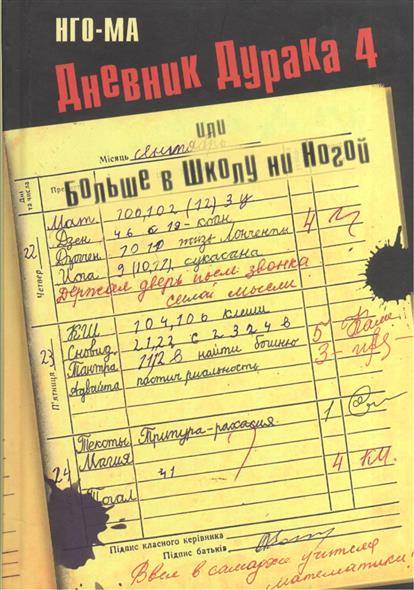 НГО-МА
Дневник Дурака 4
или
Больше в Школу ни Ногой
Місяць сентябрь
Дні та числа
Пре
22 Четвер
Мат. 100,102 (12) 3 у
Дзен 46 6 18-коан
Дзогчен 70 71 тигле Лонченпы 4
Йога 9 (10,11) сукасана
Держал дверь после звонка
силой мысли!
23 П'ятниця
КШ 104,106 клеши
Сновид. 21,22 с 2 3 2 4 в 5
Тантра 1112 8 найти бошню 3-
Адвайта постич реальность
24
Тексты Трипура-рахасья 1
Магия ч1 4 КМ.
Тогал
Підпис класного керівника
Підпис батьків
Ввел в самадхи учителя
математики!